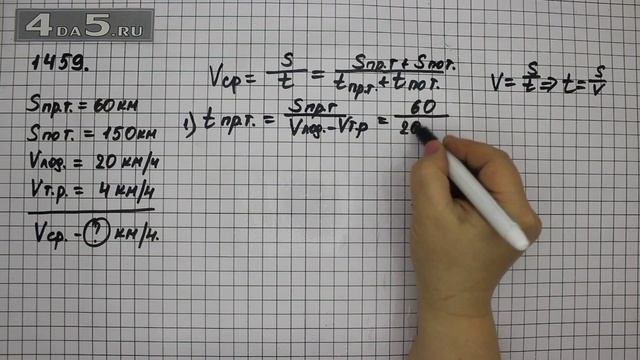 4DA5.RU
1459.
Sпр.т. = 60 км
Sпот. = 150 км
Vлод. = 20 км/ч
Vт.р. = 4 км/ч
Vср. - ? км/ч.
Vср = S/t = (Sпр.т + Sпот.)/(tпр.т. + tпот.)
V = S/t ⇒ t = S/V
1) tпр.т. = Sпр.т/(Vлод. - Vт.р) = 60/20